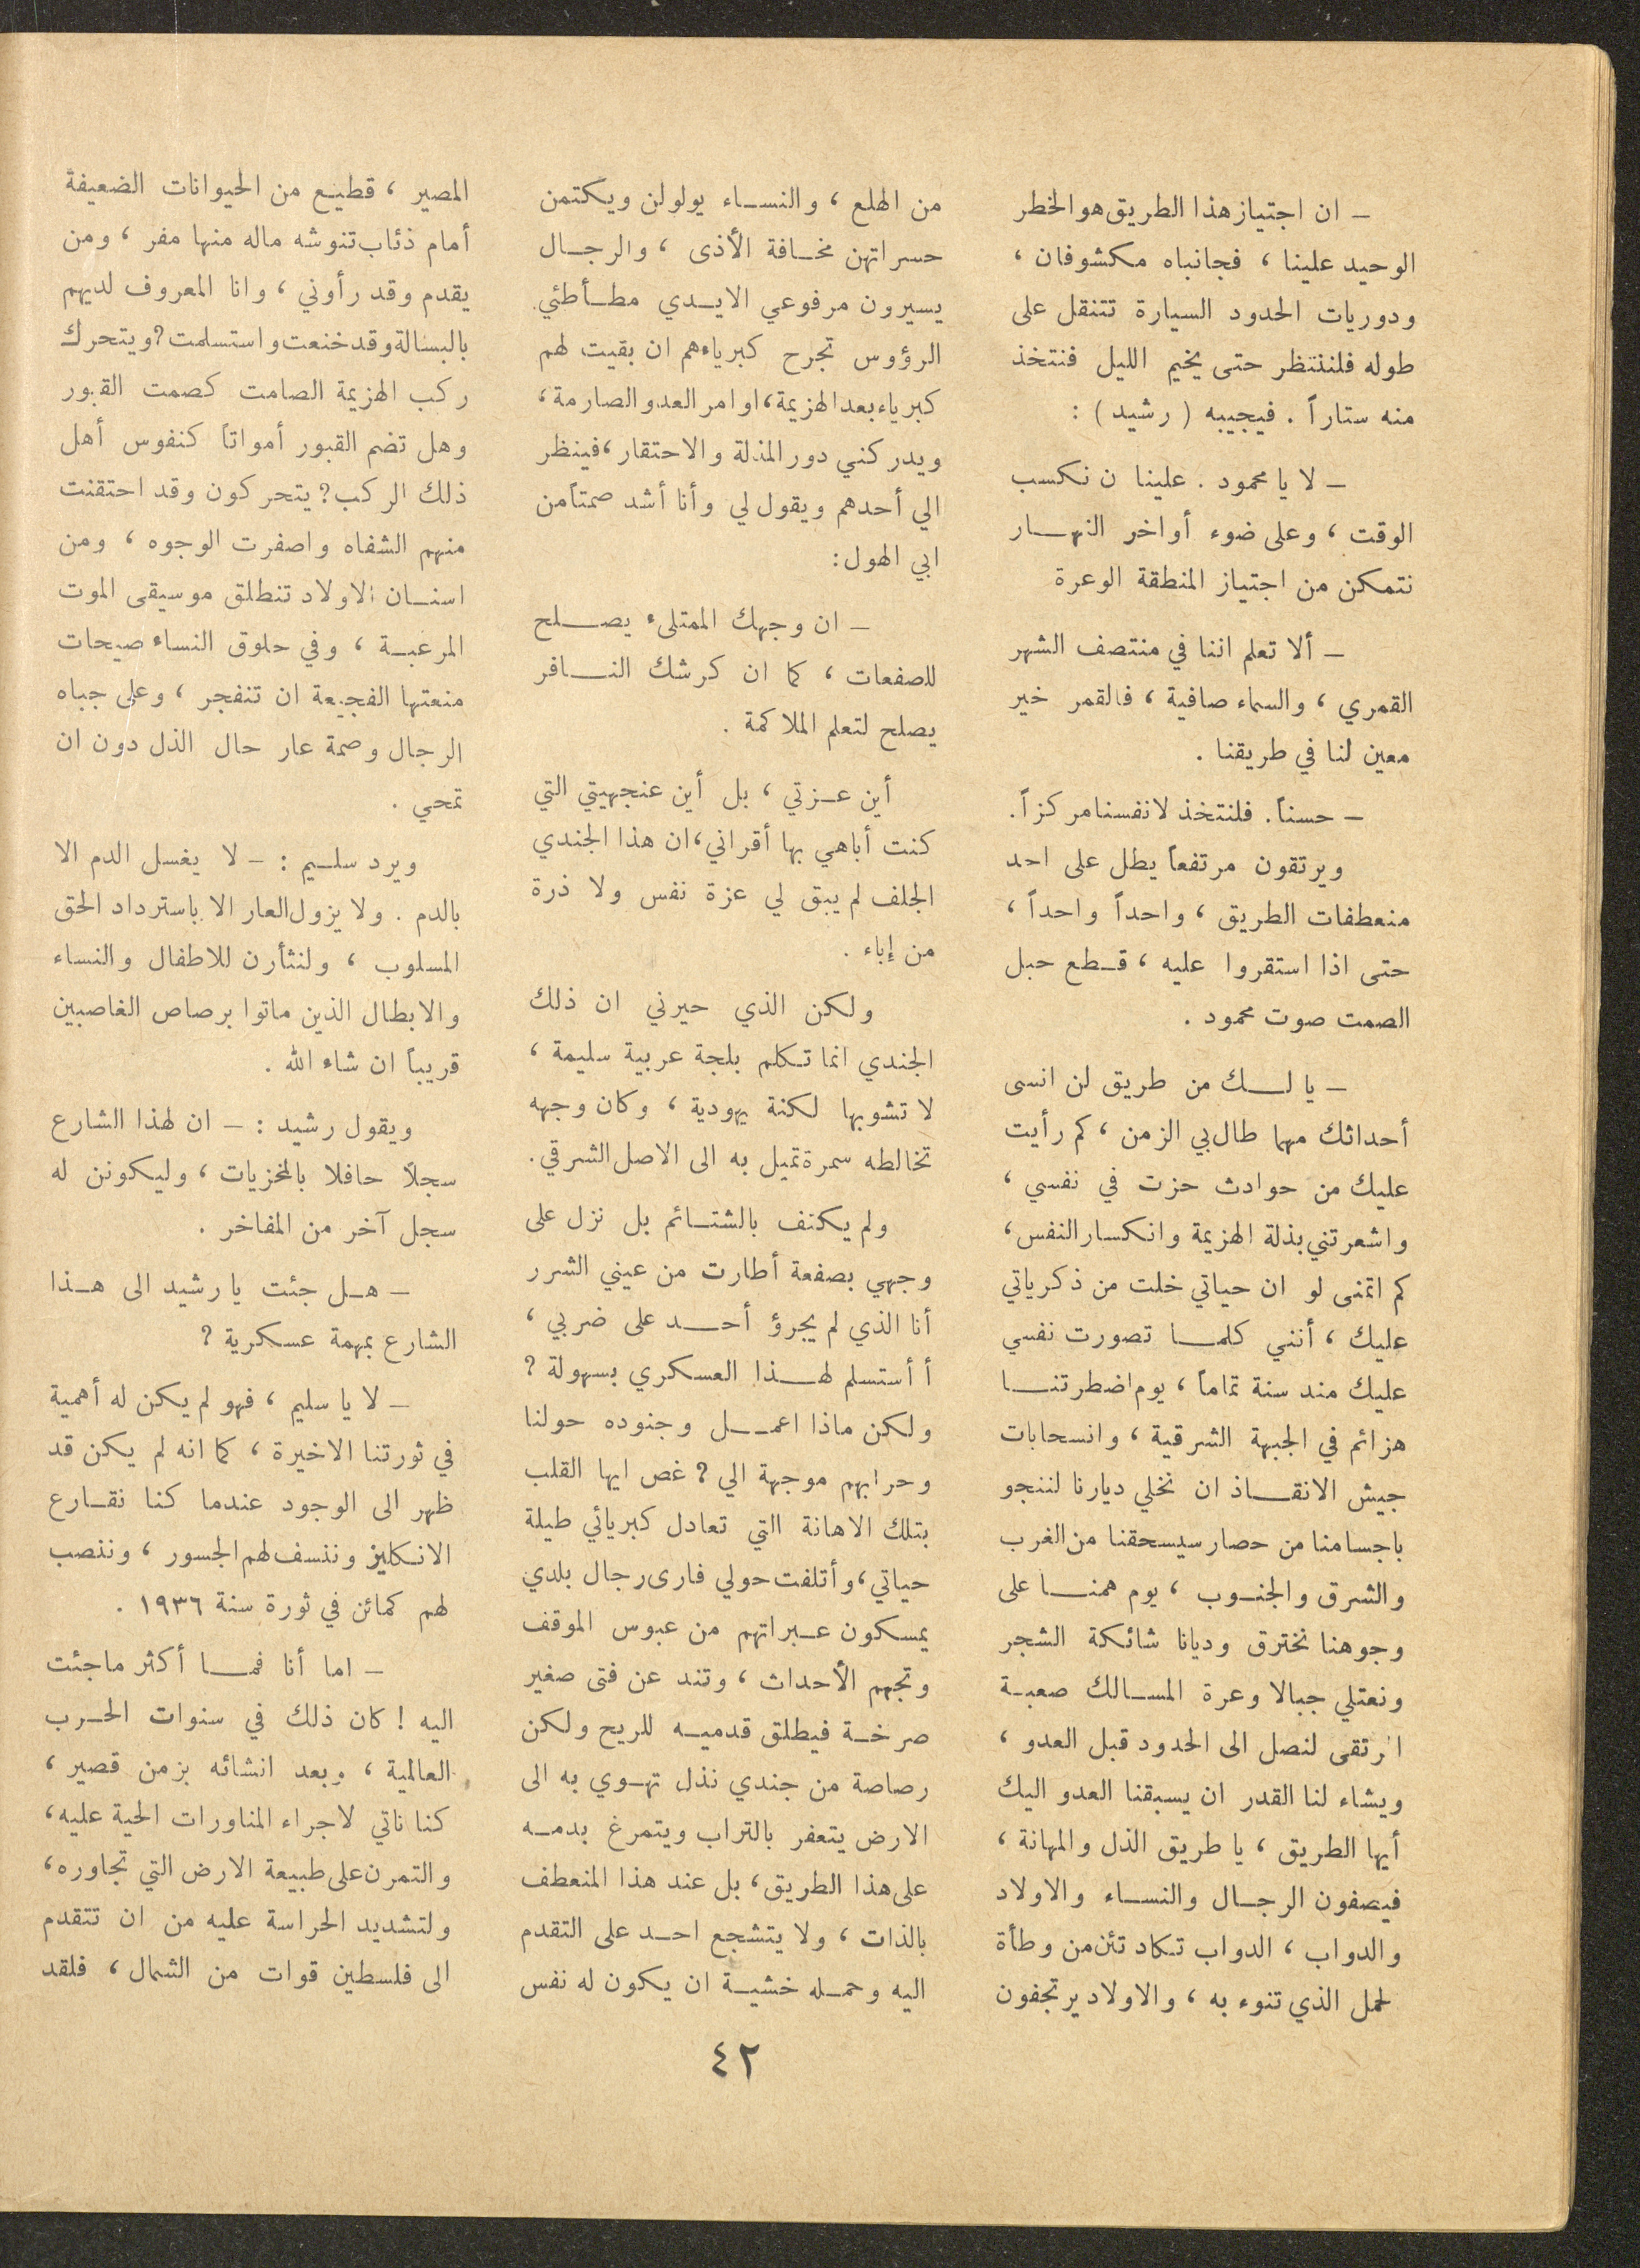 – ان اجتياز هذا الطريق هو الخطر
الوحيد علينا ، فجانباه مكشوفان ،
ودوريات الحدود السيارة تتنقل على
طوله فلننتظر حتى يخيم الليل فنتخذ
منه ستاراً . فيجيبه ( رشيد ) :
– لا يا محمود . علينا ن نكسب
الوقت ، وعلى ضوء أواخر النهار
نتمكن من اجتياز المنطقة الوعرة
– ألا تعلم اننا في منتصف الشهر
القمري ، والسماء صافية ، فالقمر خير
معين لنا في طريقنا .
– حسناً . فلنتخذ لانفسنا مركزاً .
ويرتقون مرتفعاً يطل على احد
منعطفات الطريق ، واحداً واحداً ،
حتى اذا استقروا عليه ، قطع حبل
الصمت صوت محمود .
– يا لك من طريق لن انسى
أحداثك مهما طال بي الزمن ، كم رأيت
عليك من حوادث حزت في نفسي ،
واشعرتني بذلة الهزيمة وانكسار النفس ،
كم اتمنى لو ان حياتي خلت من ذكرياتي
عليك ، أنني كلما تصورت نفسي
عليك مند سنة تماماً ، يوم اضطرتنا
هزائم في الجبهة الشرقية ، وانسحابات
جيش الانقاذ ان نخلي ديارنا لننجو
باجسامنا من حصار سيسحقنا من الغرب
والشرق والجنوب ، يوم همنا على
وجوهنا نخترق وديانا شائكة الشجر
ونعتلي جبالا وعرة المسالك صعبة
المرتقى لنصل الى الحدود قبل العدو ،
ويشاء لنا القدر ان يسبقنا العدو اليك
أيها الطريق ، يا طريق الذل والمهانة ،
فيصفون الرجال والنساء والاولاد
والدواب ، الدواب تكاد تئن من وطأة
لحمل الذي تنوء به ، والاولاد يرتجفون
من الهلع ، والنساء يولولن ويكتمن
حسراتهن مخافة الأذى ، والرجال
يسيرون مرفوعي الايدي مطأطئي
الرؤوس تجرح كبرياءهم ان بقيت لهم
كبرياء بعد الهزيمة ، اوامر العدو الصارمة ،
ويدركني دور المذلة والاحتقار ، فينظر
الي أحدهم ويقول لي وأنا أشد صمتاً من
ابي الهول :
– ان وجهك الممتلىء يصلح
للصفعات ، كما ان كرشك النافر
يصلح لتعلم الملاكمة .
أين عزتي ، بل أين عنجهيتي التي
كنت أباهي بها أقراني ، ان هذا الجندي
الجلف لم يبق لي عزة نفس ولا ذرة
من إباء .
ولكن الذي حيرني ان ذلك
الجندي انما تكلم بلجة عربية سليمة ،
لا تشوبها لكنة يهودية ، وكان وجهه
تخالطه سمرة تميل به الى الاصل الشرقي .
ولم يكتف بالشتائم بل نزل على
وجهي بصفعة أطارت من عيني الشرر
أنا الذي لم يجرؤ أحد على ضربي ،
أ أستسلم لهذا العسكري بسهولة ؟
ولكن ماذا اعمل وجنوده حولنا
وحرابهم موجهة الي ؟ غص ايها القلب
بتلك الاهانة التي تعادل كبريائي طيلة
حياتي ، وأتلفت حولي فارى رجال بلدي
يمسكون عبراتهم من عبوس الموقف
وتجهم الأحداث ، وتند عن فتى صغير
صرخة فيطلق قدميه للريح ولكن
رصاصة من جندي نذل تهوي به الى
الارض يتعفر بالتراب ويتمرغ بدمه
على هذا الطريق ، بل عند هذا المنعطف
بالذات ، ولا يتشجع احد على التقدم
اليه وحمله خشية ان يكون له نفس
المصير ، قطيع من الحيوانات الضعيفة
أمام ذئاب تنوشه ماله منها مفر ، ومن
يقدم وقد رأوني ، وانا المعروف لديهم
بالبسالة وقد خنعت واستسلمت ؟ ويتحرك
ركب الهزيمة الصامت كصمت القبور
وهل تضم القبور أمواتاً كنفوس أهل
ذلك الركب ؟ يتحركون وقد احتقنت
منهم الشفاه واصفرت الوجوه ، ومن
اسنان الاولاد تنطلق موسيقى الموت
المرعبة ، وفي حلوق النساء صيحات
منعتها الفجيعة ان تنفجر ، وعلى جباه
الرجال وصمة عار حال الذل دون ان
تمحي .
ويرد سليم : – لا يغسل الدم الا
بالدم . ولا يزول العار الا باسترداد الحق
المسلوب ، ولنثأرن للاطفال والنساء
والابطال الذين ماتوا برصاص الغاصبين
قريباً ان شاء الله .
ويقول رشيد : – ان لهذا الشارع
سجلاً حافلا بالمخزيات ، وليكونن له
سجل آخر من المفاخر .
– هل جئت يا رشيد الى هذا
الشارع بمهمة عسكرية ؟
– لا يا سليم ، فهو لم يكن له أهمية
في ثورتنا الاخيرة ، كما انه لم يكن قد
ظهر الى الوجود عندما كنا نقارع
الانكليز وننسف لهم الجسور ، وننصب
لهم كمائن في ثورة سنة ١٩٣٦ .
– اما أنا فما أكثر ما جئت
اليه ! كان ذلك في سنوات الحرب
العالمية ، وبعد انشائه بزمن قصير ،
كنا ناتي لاجراء المناورات الحية عليه ،
والتمرن على طبيعة الارض التي تجاوره ،
ولتشديد الحراسة عليه من ان تتقدم
الى فلسطين قوات من الشمال ، فلقد
٤٢